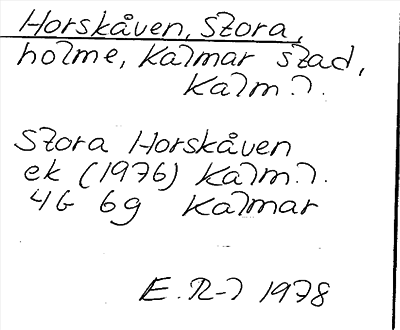 Horskåven, Stora,
holme, Kalmar stad,
Kalm.l.
Stora Horskåven
ek (1976) Kalm.l.
4G 6g Kalmar
E.R-l 1978